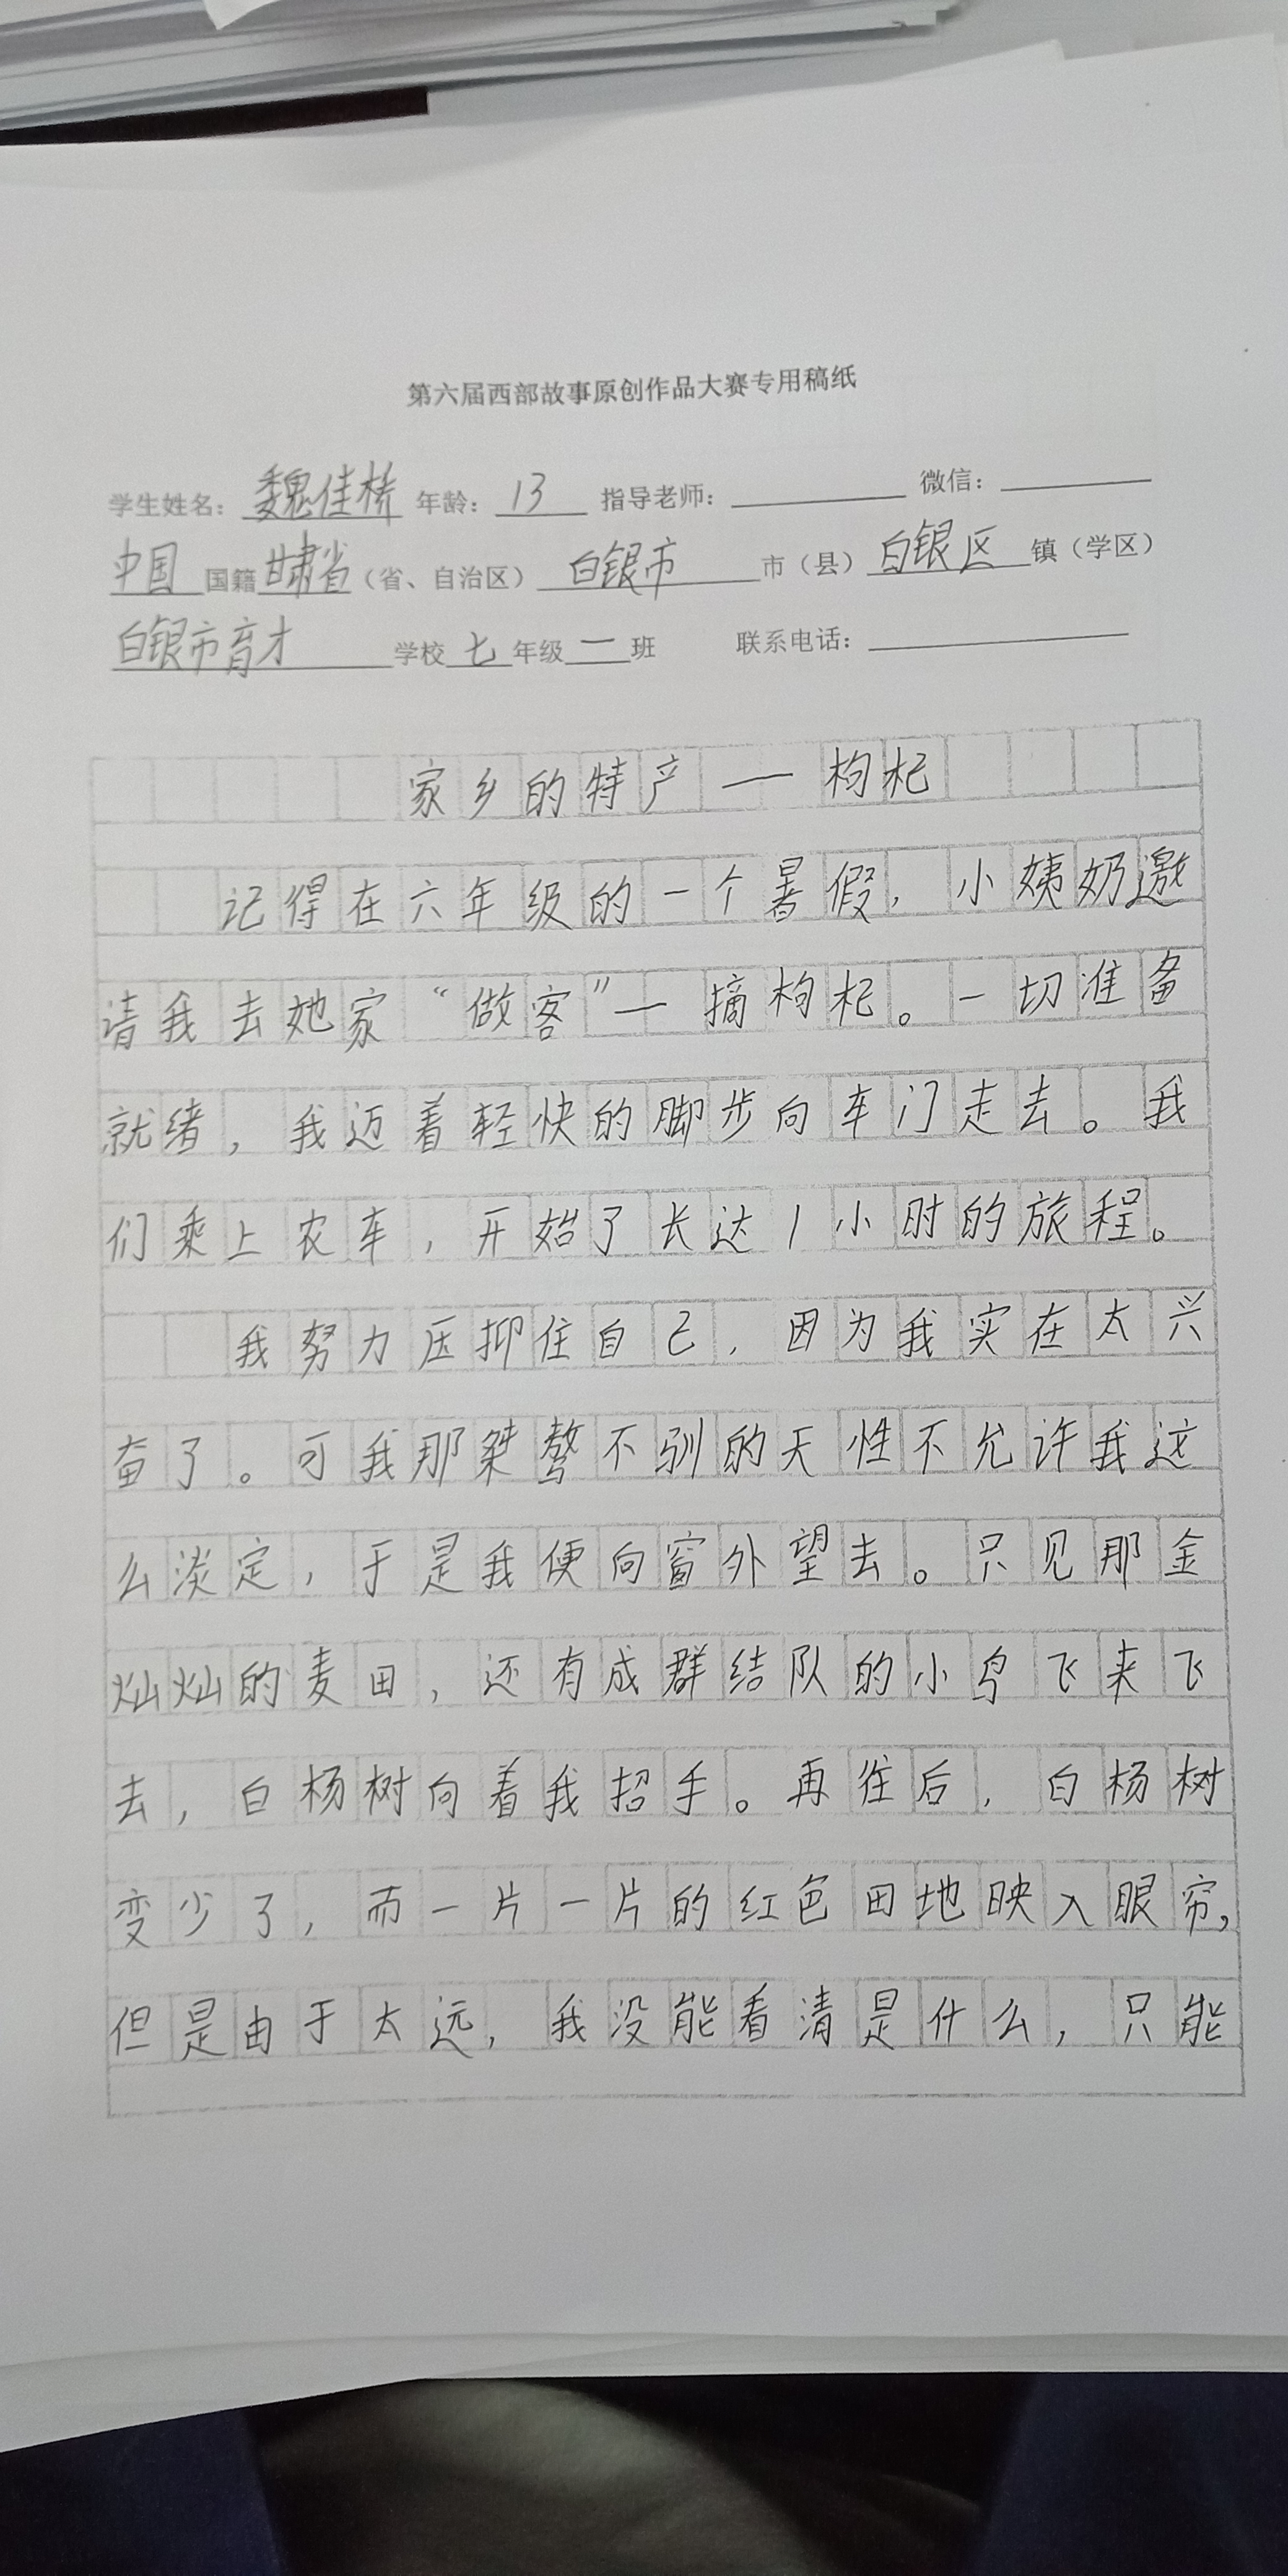 第六届西部故事原创作品大赛专用稿纸
学生姓名：魏佳桥 年龄：13 指导老师： 微信：
中国 国籍 甘肃省（省、自治区） 白银市 市（县） 白银区 镇（学区）
白银市育才 学校 七 年级 一 班 联系电话：
家乡的特产——枸杞
记得在六年级的一个暑假，小姨奶邀
请我去她家“做客”—摘枸杞。一切准备
就绪，我迈着轻快的脚步向车门走去。我
们乘上农车，开始了长达1小时的旅程。
我努力压抑住自己，因为我实在太兴
奋了。可我那桀骜不驯的天性不允许我这
么淡定，于是我便向窗外望去。只见那金
灿灿的麦田，还有成群结队的小鸟飞来飞
去，白杨树向着我招手。再往后，白杨树
变少了，而一片一片的红色田地映入眼帘，
但是由于太远，我没能看清是什么，只能